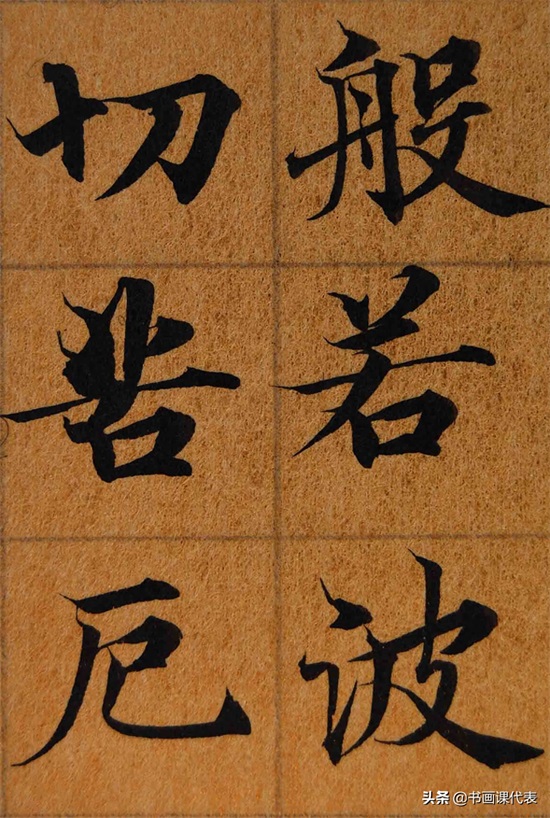 般若波
切苦厄
头条 @书画课代表